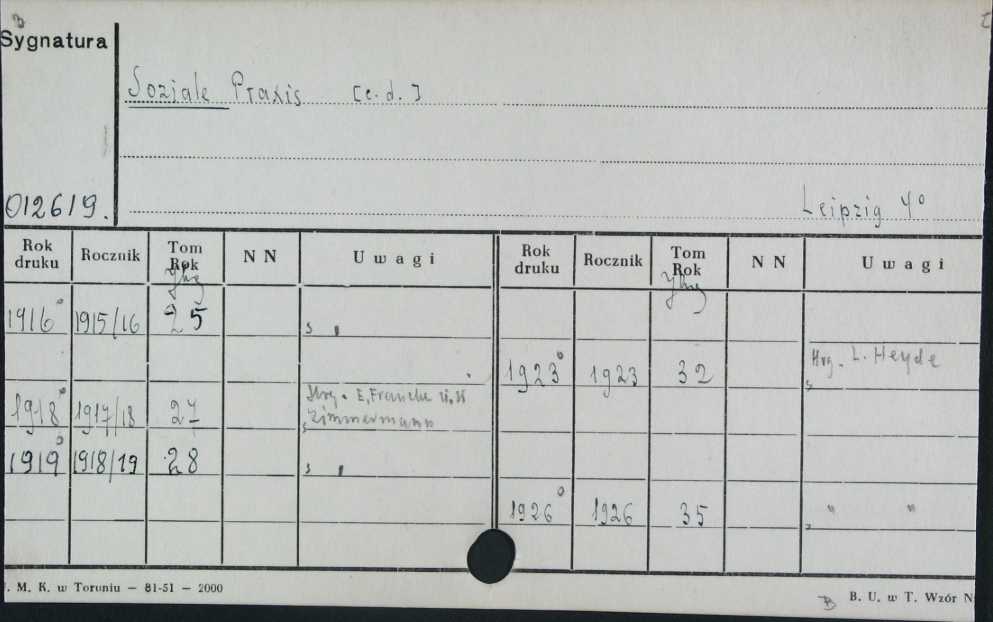 B
Sygnatura
Soziale Praxis [c.d.]
012619.
Leipzig 4°
Rok druku Rocznik Tom Rok NN Uwagi Rok druku Rocznik Tom Rok NN Uwagi
Jhg Jhg
1916° 1915/16 25 „ „
1923° 1923 32 Hrg. L. Heyde
1918° 1917/18 27 Hrg. E. Francke u. W
Zimmermann
1919° 1918/19 28 „ „
1926° 1926 35 „ „
. M. K. w Toruniu — 81-51 — 2000
B
B. U. w T. Wzór N